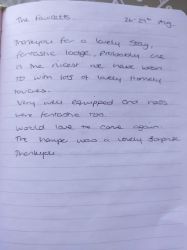 The Fawcetts. 26-29th Aug.
Thankyou for a lovely stay,
fantastic lodge, probably one
of the nicest we have been
to with lots of lovely homely
touches.
Very well equipped and
were fantastic too.
Would love to come again.
The hamper was a lovely surprise
Thankyou.